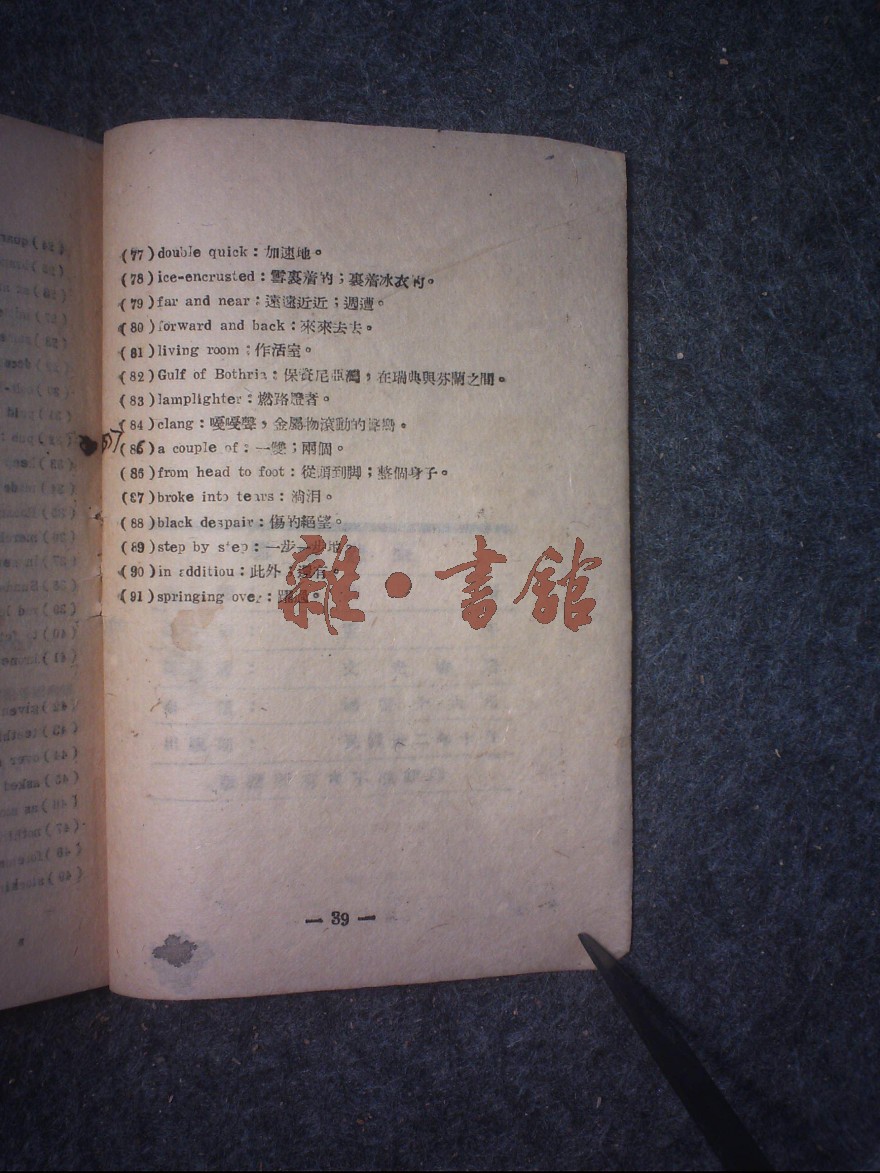 (77)double quick：加速地。
(78)ice-encrusted：雪裏着的；裏着冰衣的。
(79)far and near：遠遠近近；週遭。
(80)forward and back：來來去去。
(81)living room：作活室。
(82)Gulf of Bothria：保資尼亞灣，在瑞典與芬蘭之間。
(83)lamplighter：燃路燈者。
(84)clang：嗄嗄聲，金屬物滾動的聲響。
(85)a couple of：一雙；兩個。
(86)from head to foot：從頭到脚；整個身子。
(87)broke into tears：淌泪。
(88)black despair：傷的絕望。
(89)step by step：一步一步地。
(90)in additiou：此外；還有。
(91)springing over：
雜·書館
— 39 —